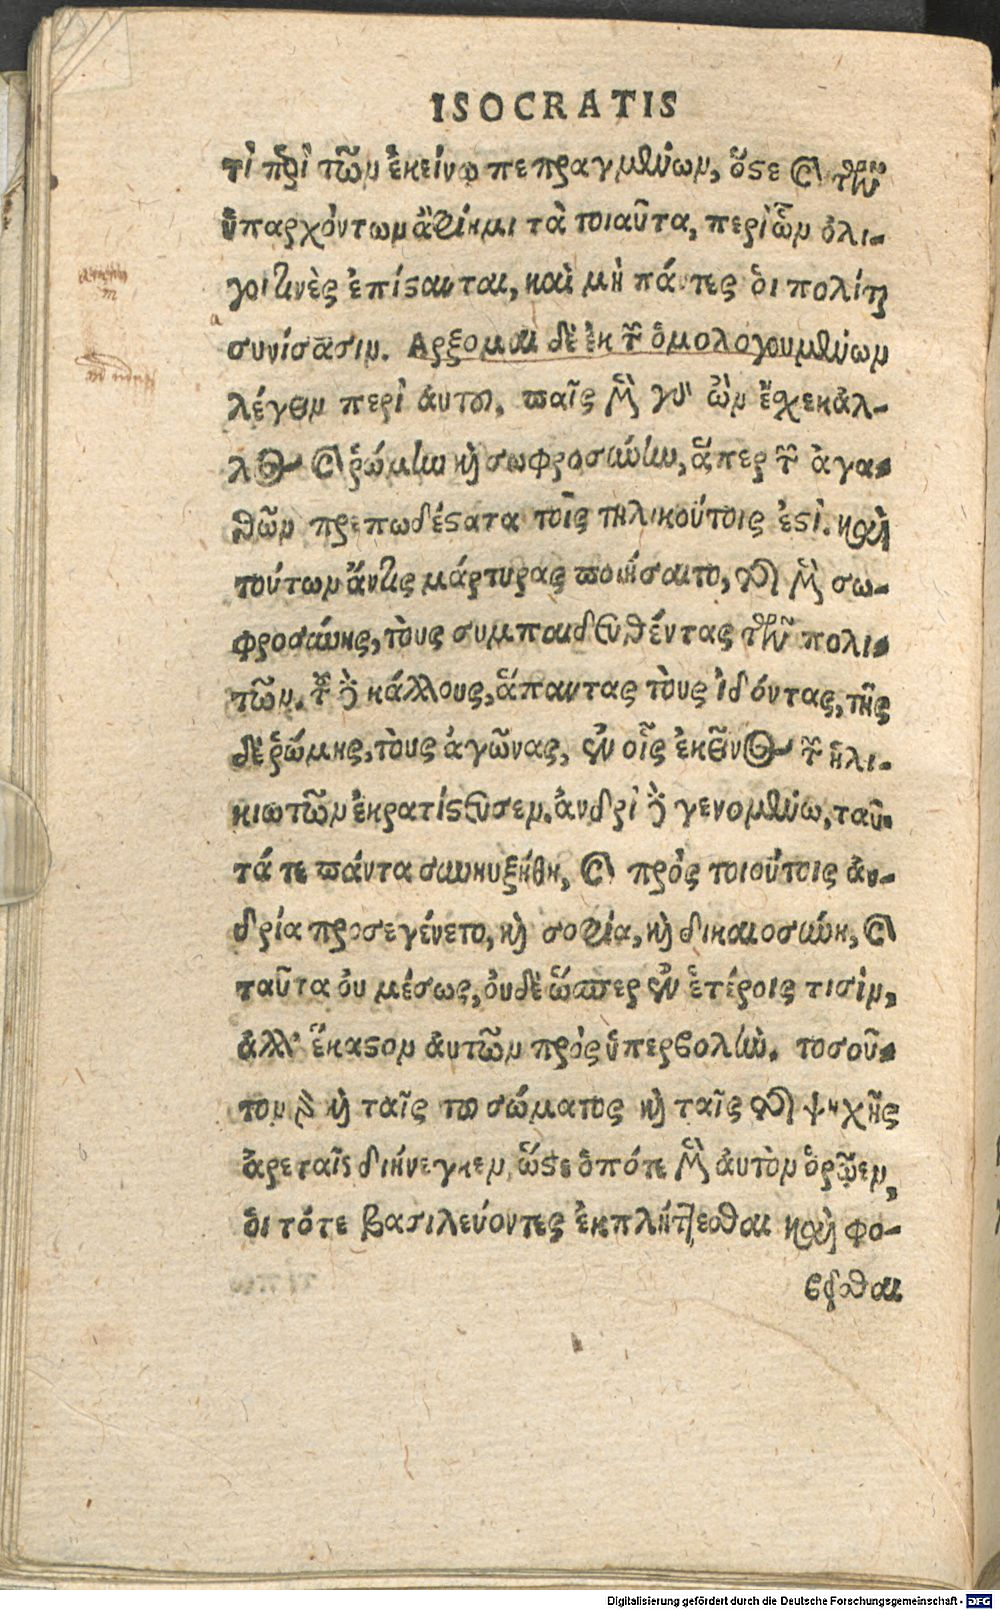 ISOCRATIS
τὶ περὶ τῶν ἐκείνῳ πεπραγμένων, ὅστε καὶ τῶν
ὑπαρχόντων ἀφίημι τὰ τοιαῦτα, περὶ ὧν ὀλί-
γοι τινὲς ἐπίστανται, καὶ μὴ πάντες ὁι πολίται
συνίσασιν. Αρξομαι δὲ ἐκ τῶν ὁμολογουμένων
λέγειν περὶ ἀυτοῦ. παῖς μὲν γὰρ ὢν ἔχε κάλ-
λος καὶ ῥώμην καὶ σωφροσύνην, ἅπερ τῶν ἀγα-
θῶν πρεπωδέστατα τοῖς τηλικούτοις ἐστὶ. καὶ
τούτων ἄν τις μάρτυρας ποιήσαιτο, τῆς μὲν σω-
φροσύνης, τοὺς συμπαιδευθέντας τῶν πολι-
τῶν. τοῦ δὲ κάλλους, ἅπαντας τοὺς ἰδόντας, τῆς
δὲ ῥώμης, τοὺς ἀγῶνας, ἐν οἷς ἐκεῖνος τῶν ἡλι-
κιωτῶν ἐκρατίστευσεν. ἀνδρὶ δὲ γενομένῳ, ταῦ-
τά τε πάντα συνηυξήθη, καὶ πρὸς τοιούτοις ἀν-
δρία προσεγένετο, καὶ σοφία, καὶ δικαιοσύνη, καὶ
ταῦτα ὀυ μέσως, ὀυδὲ ὥσπερ ἐν ἑτέροις τισὶν,
ἀλλ' ἕκαστον ἀυτῶν πρὸς ὑπερβολὴν. τοσοῦ-
τον γὰρ καὶ ταῖς τοῦ σώματος καὶ ταῖς τῆς ψυχῆς
ἀρεταῖς διήνεγκεν, ὥστε ὁπότε μὲν ἀυτὸν ὁρῷεν,
ὁι τότε βασιλεύοντες ἐκπλήττεσθαι καὶ φο-
βεῖσθαι
Digitalisierung gefördert durch die Deutsche Forschungsgemeinschaft - DFG